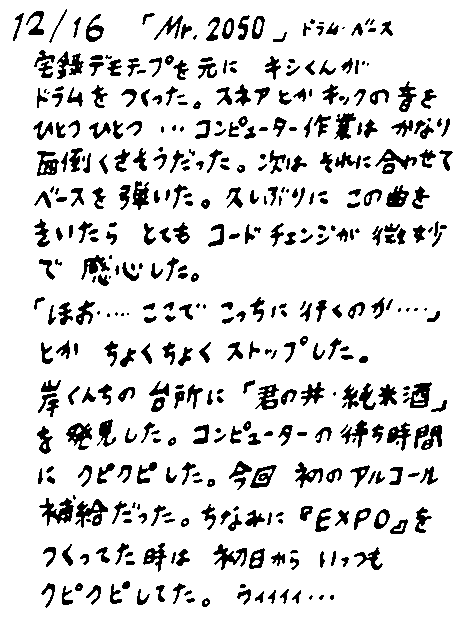 12/16 「Mr. 2050」 ドラム・ベース
宅録デモテープを元に キシくんが
ドラムを つくった。スネアとか キックの音を
ひとつひとつ … コンピューター作業は かなり
面倒くさそうだった。次は それに合わせて
ベースを弾いた。久しぶりに この曲を
きいたら とても コードチェンジが 微妙
で 感心した。
「ほお‥‥ ここで こっちに行くのか‥‥」
とか ちょくちょく ストップした。
岸くんちの 台所に 「君の井・純米酒」
を 発見した。コンピューターの待ち時間
に クピクピした。今回 初のアルコール
補給だった。ちなみに『EXPO』を
つくってた時は 初日から いっつも
クピクピしてた。ウィィィィ…